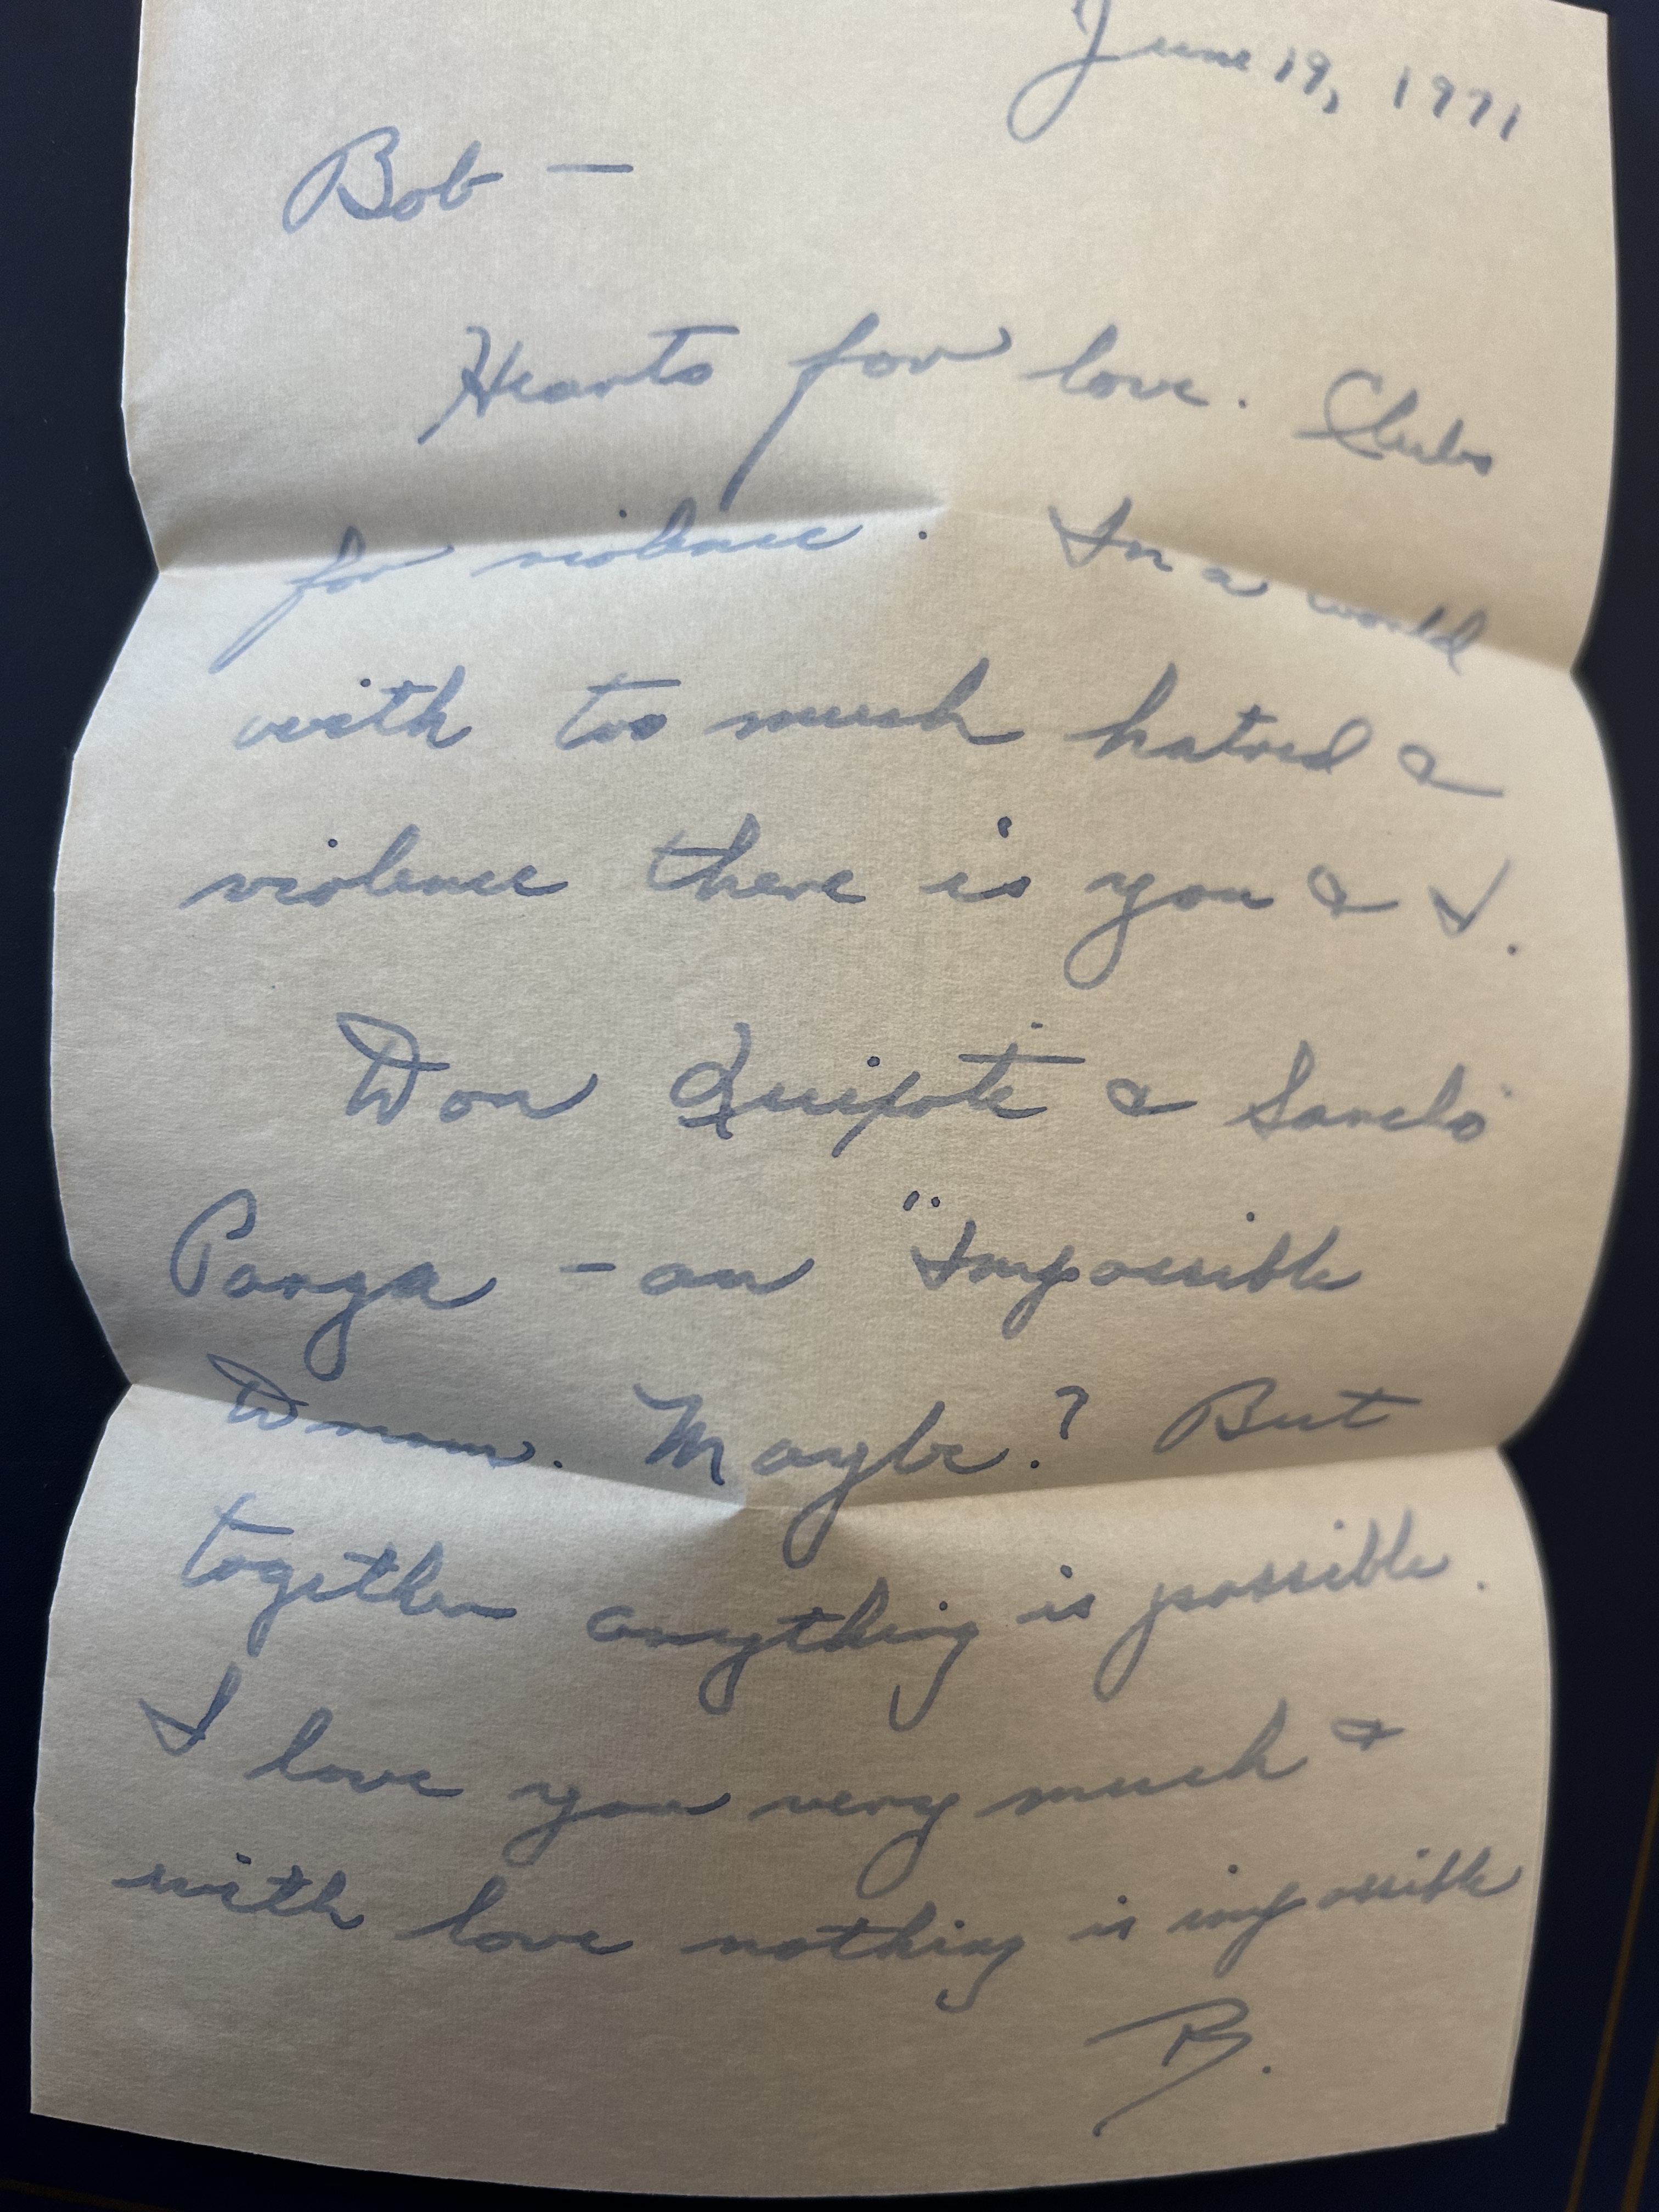 June 19, 1971
Bob —
Hearts for love. Clubs
for violence. In a world
with too much hatred &
violence there is you & I.
Don Quixote & Sancho
Panza - an "Impossible
Dream. Maybe? But
together anything is possible.
I love you very much &
with love nothing is impossible
B.